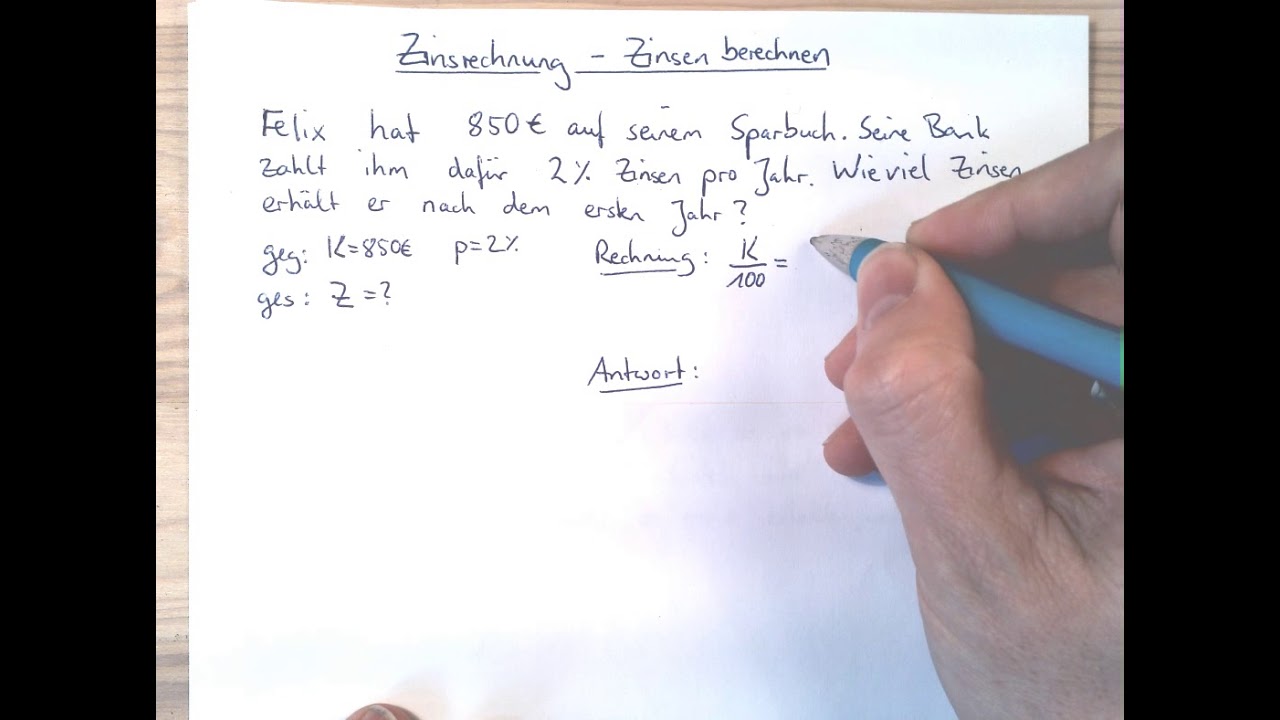 Zinsrechnung – Zinsen berechnen
Felix hat 850€ auf seinem Sparbuch. Seine Bank
zahlt ihm dafür 2% Zinsen pro Jahr. Wieviel Zinsen
erhält er nach dem ersten Jahr?
geg: K=850€ p=2%
ges: Z=?
Rechnung: K/100 =
Antwort: